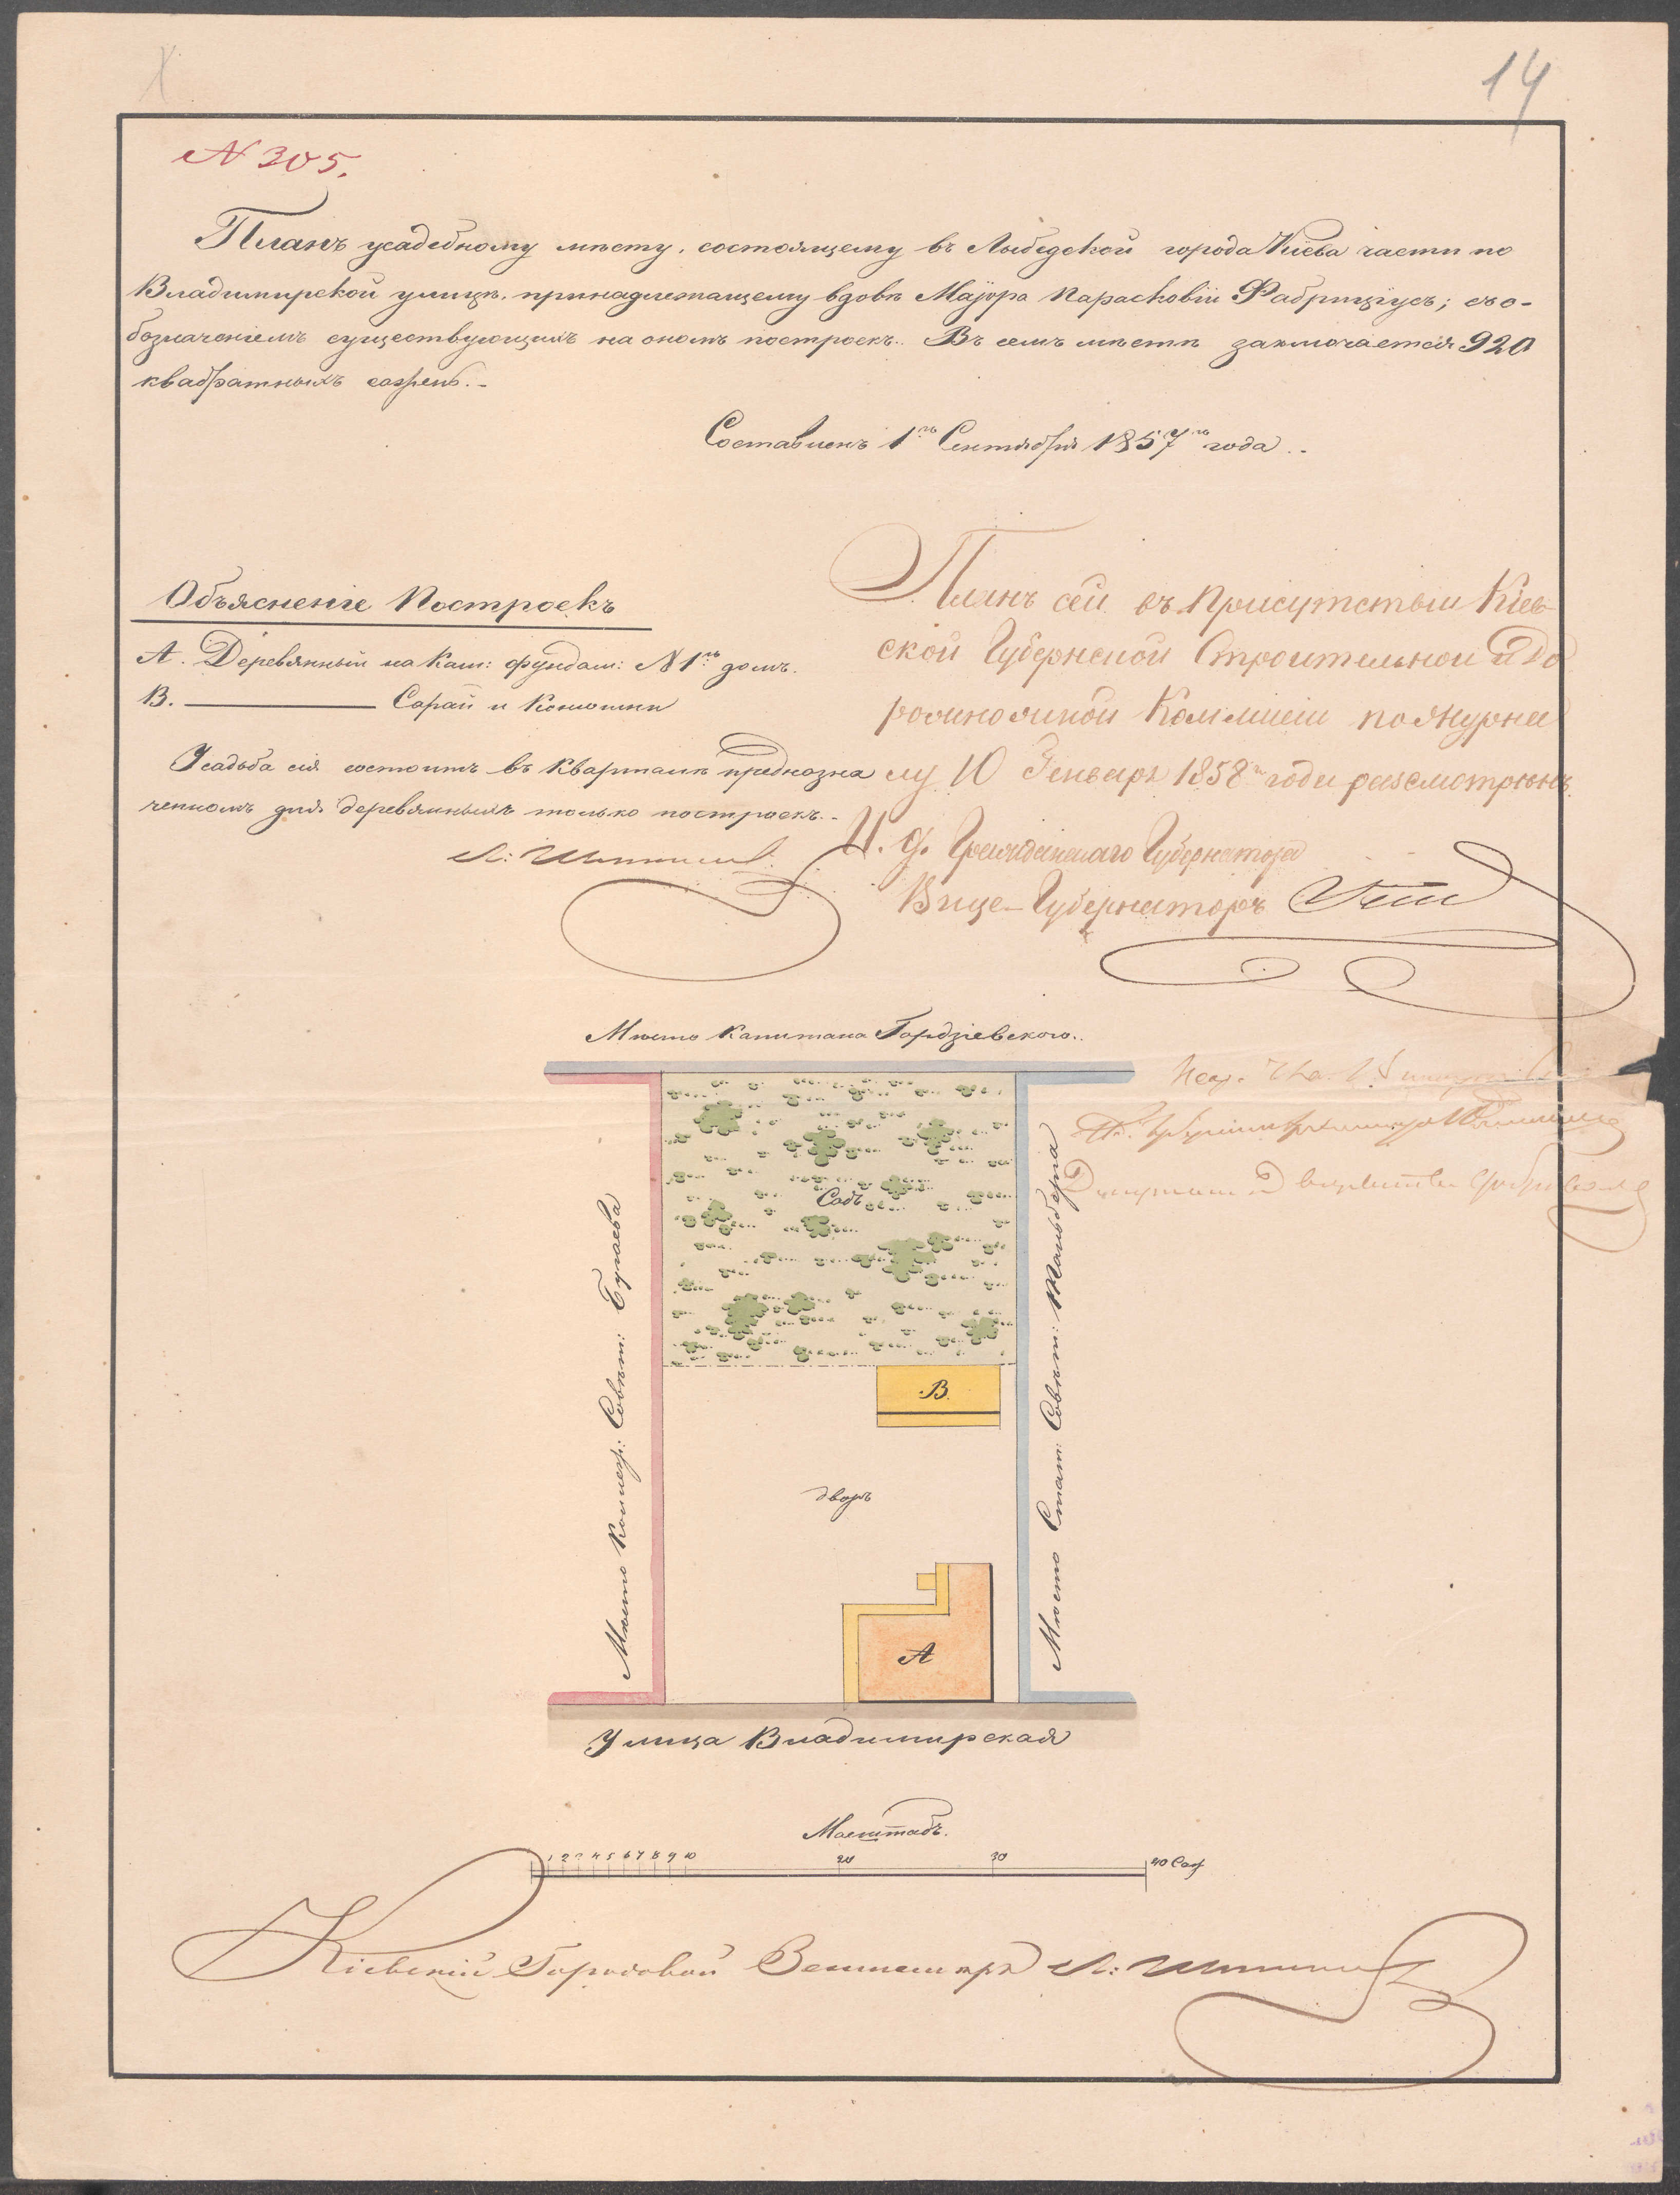 14
N 305.
Планъ усадебному мѣсту, состоящему въ Лыбедской города Кіева части по
Владимирской улицѣ, принадлежащему вдовѣ Маіора Парасковіи Фабрициусъ; съ о-
бозначеніемъ существующихъ на ономъ построекъ. Въ семъ мѣстѣ заключается 920
квадратныхъ сажень.
Составленъ 1го Сентября 1857го года.
Объясненіе Построекъ
А. Деревянный на Кам: фундам: N 1й домъ.
В. Сарай и Конюшни
Усадьба сія состоитъ въ Кварталѣ предназна
ченномъ для деревянныхъ только построекъ.
Планъ сей въ Присутствіи Кіев-
ской Губернской Строительной и До
рожной Коммисіи по Журна
лу 10 Генваря 1858го года разсмотрѣнъ.
И. д. Гражданскаго Губернатора
Вице-Губернаторъ
Мѣсто Капитана Гордзіевского.
Садъ
Мѣсто Коллеж: Совѣт: Бунаева
Мѣсто Стат: Совѣт: Тальберга
В.
дворъ
А
Улица Владимирская
Масштабъ.
1 2 3 4 5 6 7 8 9 10 20 30 40 Саж
Кіевскій Городовой Землемѣръ Л: